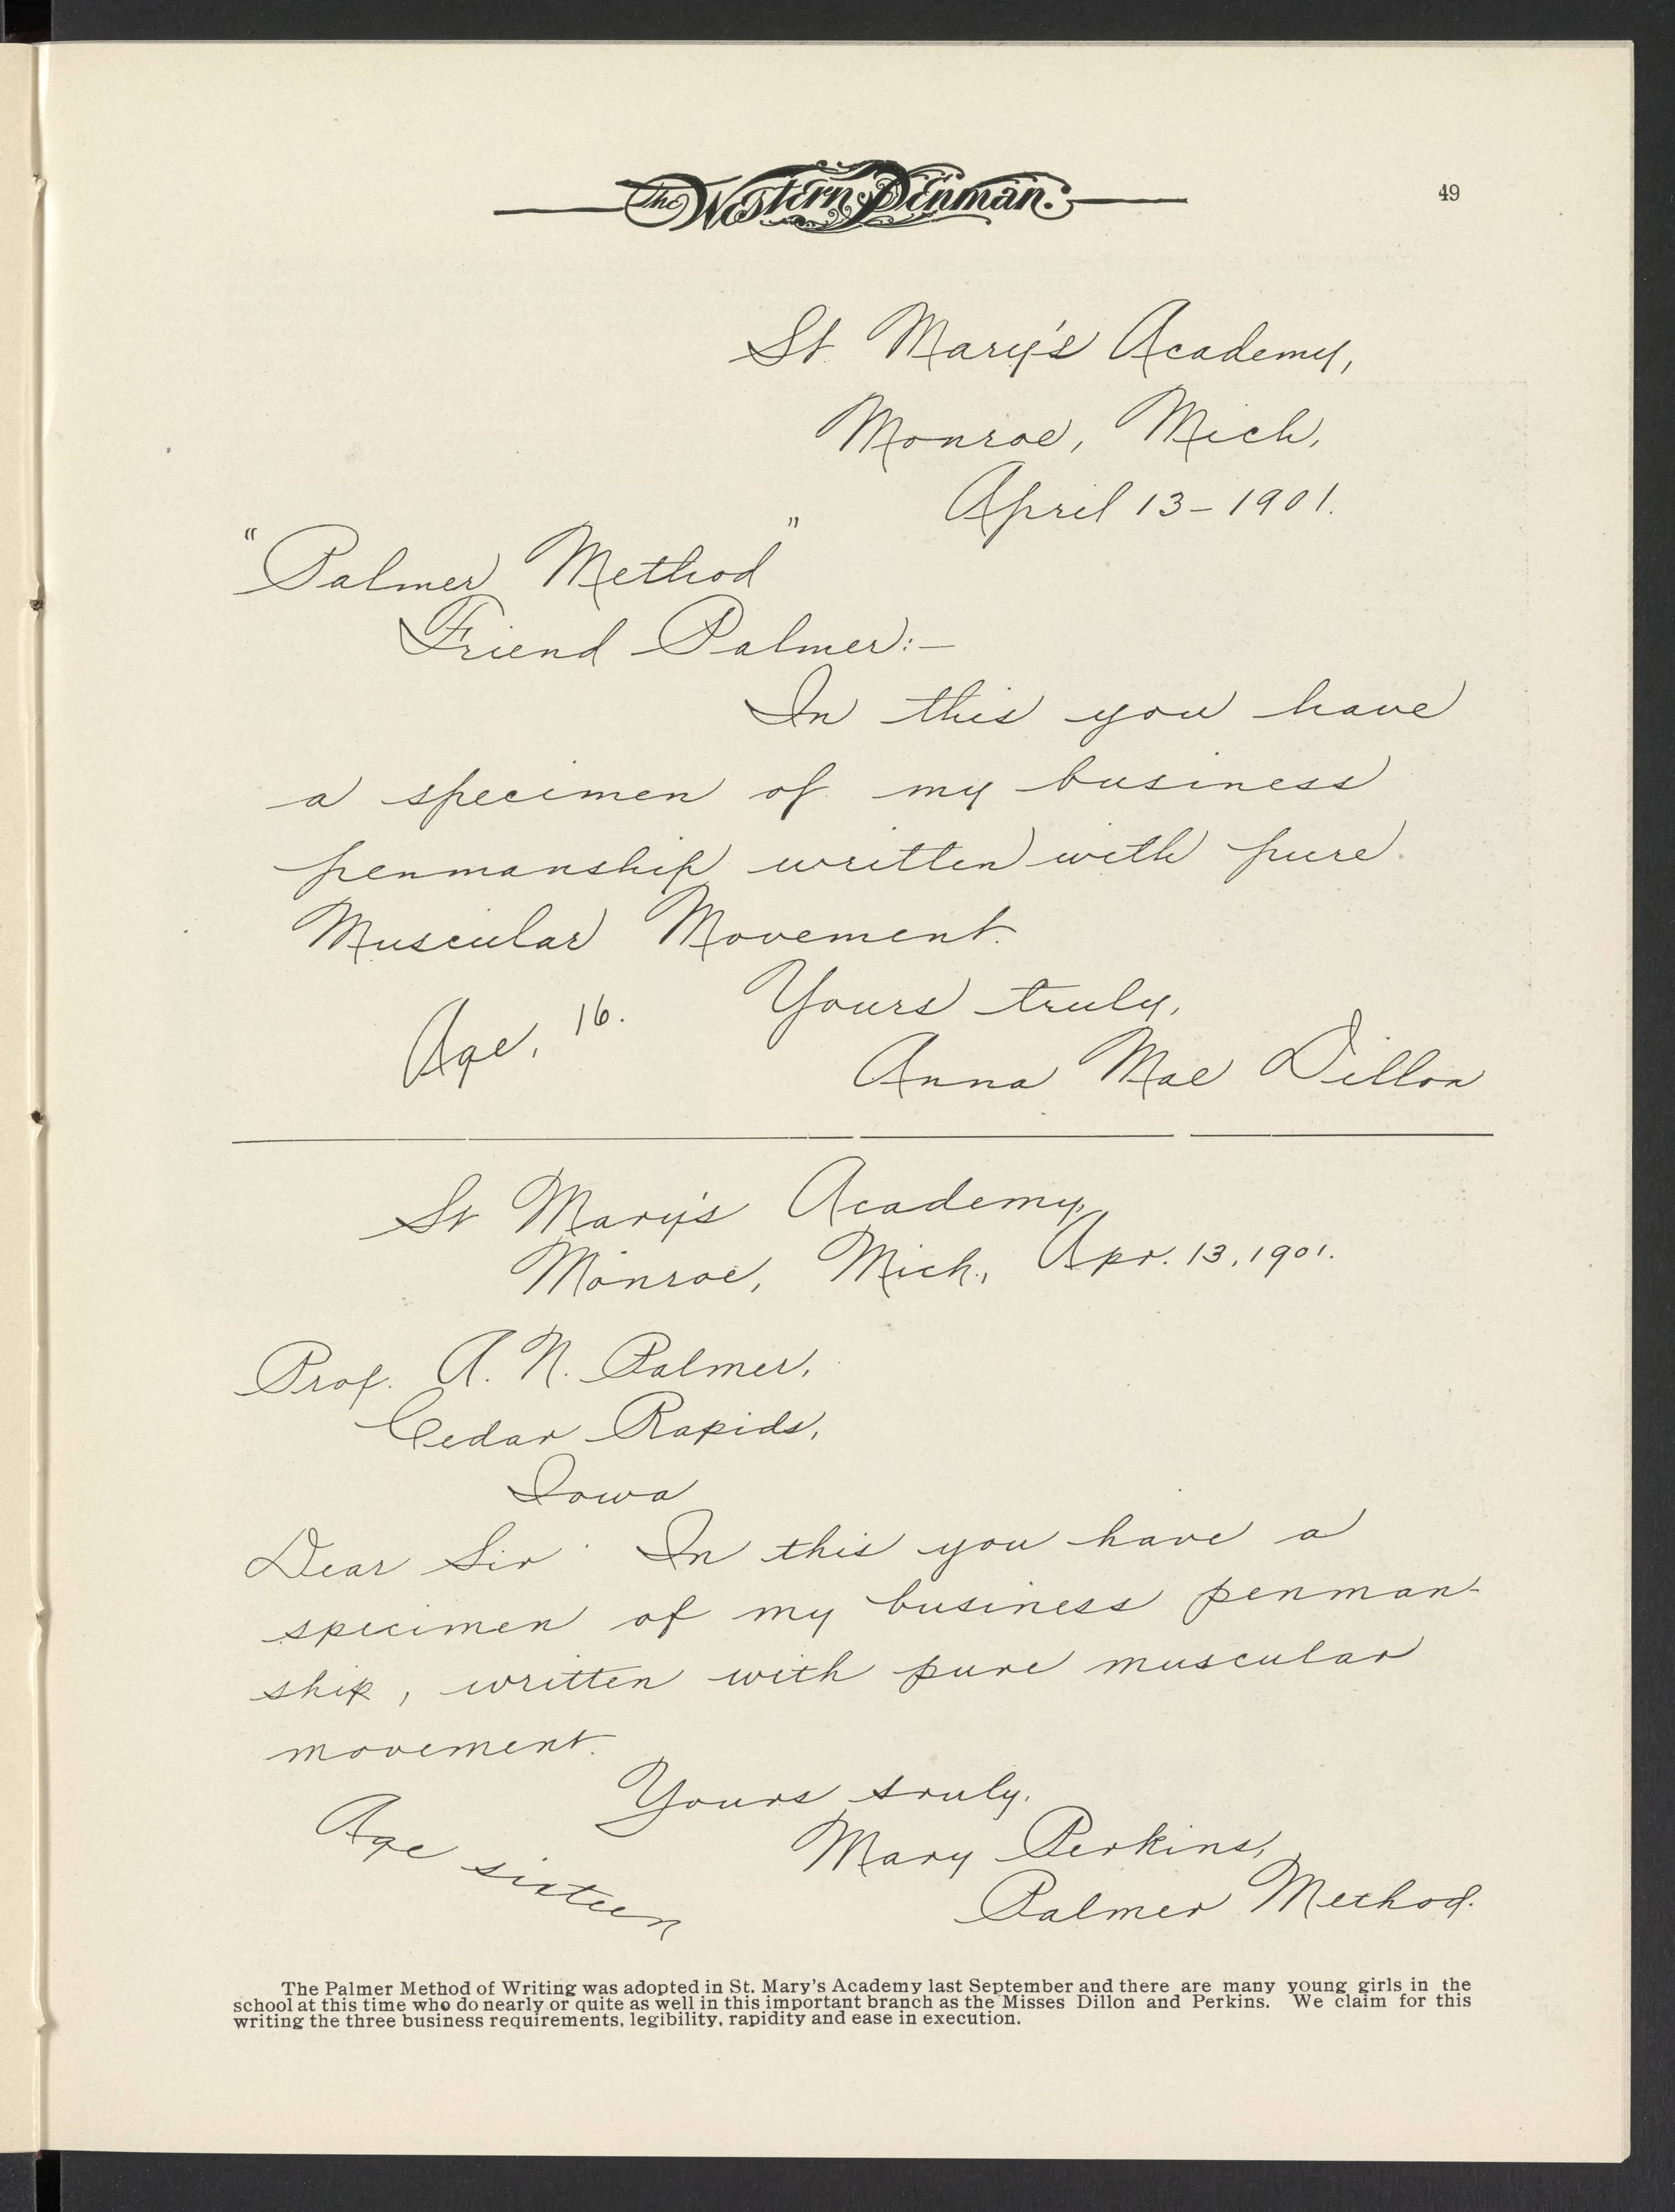 The Western Penman.
49
St. Mary's Academy,
Monroe, Mich,
April 13-1901.
"Palmer Method"
Friend Palmer:-
In this you have
a specimen of my business
penmanship written with pure
Muscular Movement.
Yours truly,
Age, 16.
Anna Mae Dillon
St Mary's Academy,
Monroe, Mich., Apr. 13, 1901.
Prof. A. N. Palmer,
Cedar Rapids,
Iowa
Dear Sir. In this you have a
specimen of my business penman-
ship, written with pure muscular
movement.
Yours truly.
Age sixteen
Mary Perkins,
Palmer Method.
The Palmer Method of Writing was adopted in St. Mary's Academy last September and there are many young girls in the
school at this time who do nearly or quite as well in this important branch as the Misses Dillon and Perkins. We claim for this
writing the three business requirements, legibility, rapidity and ease in execution.